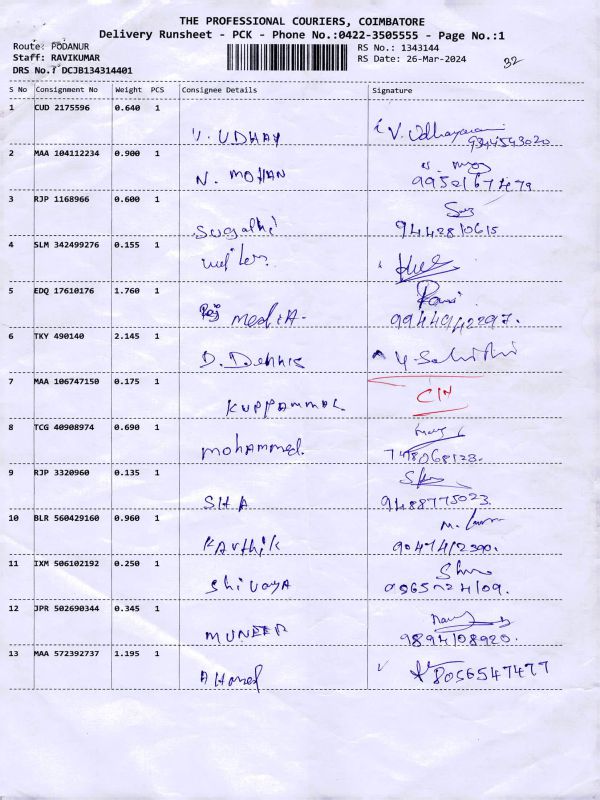 THE PROFESSIONAL COURIERS, COIMBATORE
Delivery Runsheet - PCK - Phone No.:0422-3505555 - Page No.:1
Route: PODANUR
RS No.: 1343144
Staff: RAVIKUMAR
RS Date: 26-Mar-2024
32
DRS No.: DCJB134314401
S No Consignment No Weight PCS Consignee Details Signature
1 CUD 2175596 0.640 1
V. UDHAY V. Udhayarani
9344543020
2 MAA 104112234 0.900 1
N. MOHAN
9950167479
3 RJP 1168966 0.600 1
Sugathi 9442810615
4 SLM 342499276 0.155 1
5 EDQ 17610176 1.760 1
Media. Rani
9944942297.
6 TKY 490140 2.145 1
D. Dennis
7 MAA 106747150 0.175 1
KUPPAMMAL
8 TCG 40908974 0.690 1
mohammed. 7418068123.
9 RJP 3320960 0.135 1
SHA 9488775023
10 BLR 560429160 0.960 1
Karthik
11 IXM 506102192 0.250 1
Shivaya
12 JPR 502690344 0.345 1
MUNEER 9894108920.
13 MAA 572392737 1.195 1
AHamed 8056547477